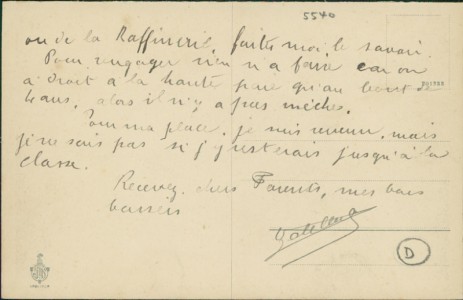 5540
ou de la Raffinerie, faites moi le savoir.
Pour rengager rien n a faire car on
a droit a la haute paie qu'au bout de
4 ans, alors il n'y a pas mèches.
ma place, je suis revenu, mais
je ne sais pas si j'y resterais jusqu'à la
classe.
Recevez, chers Parents, mes bons
baisers
D